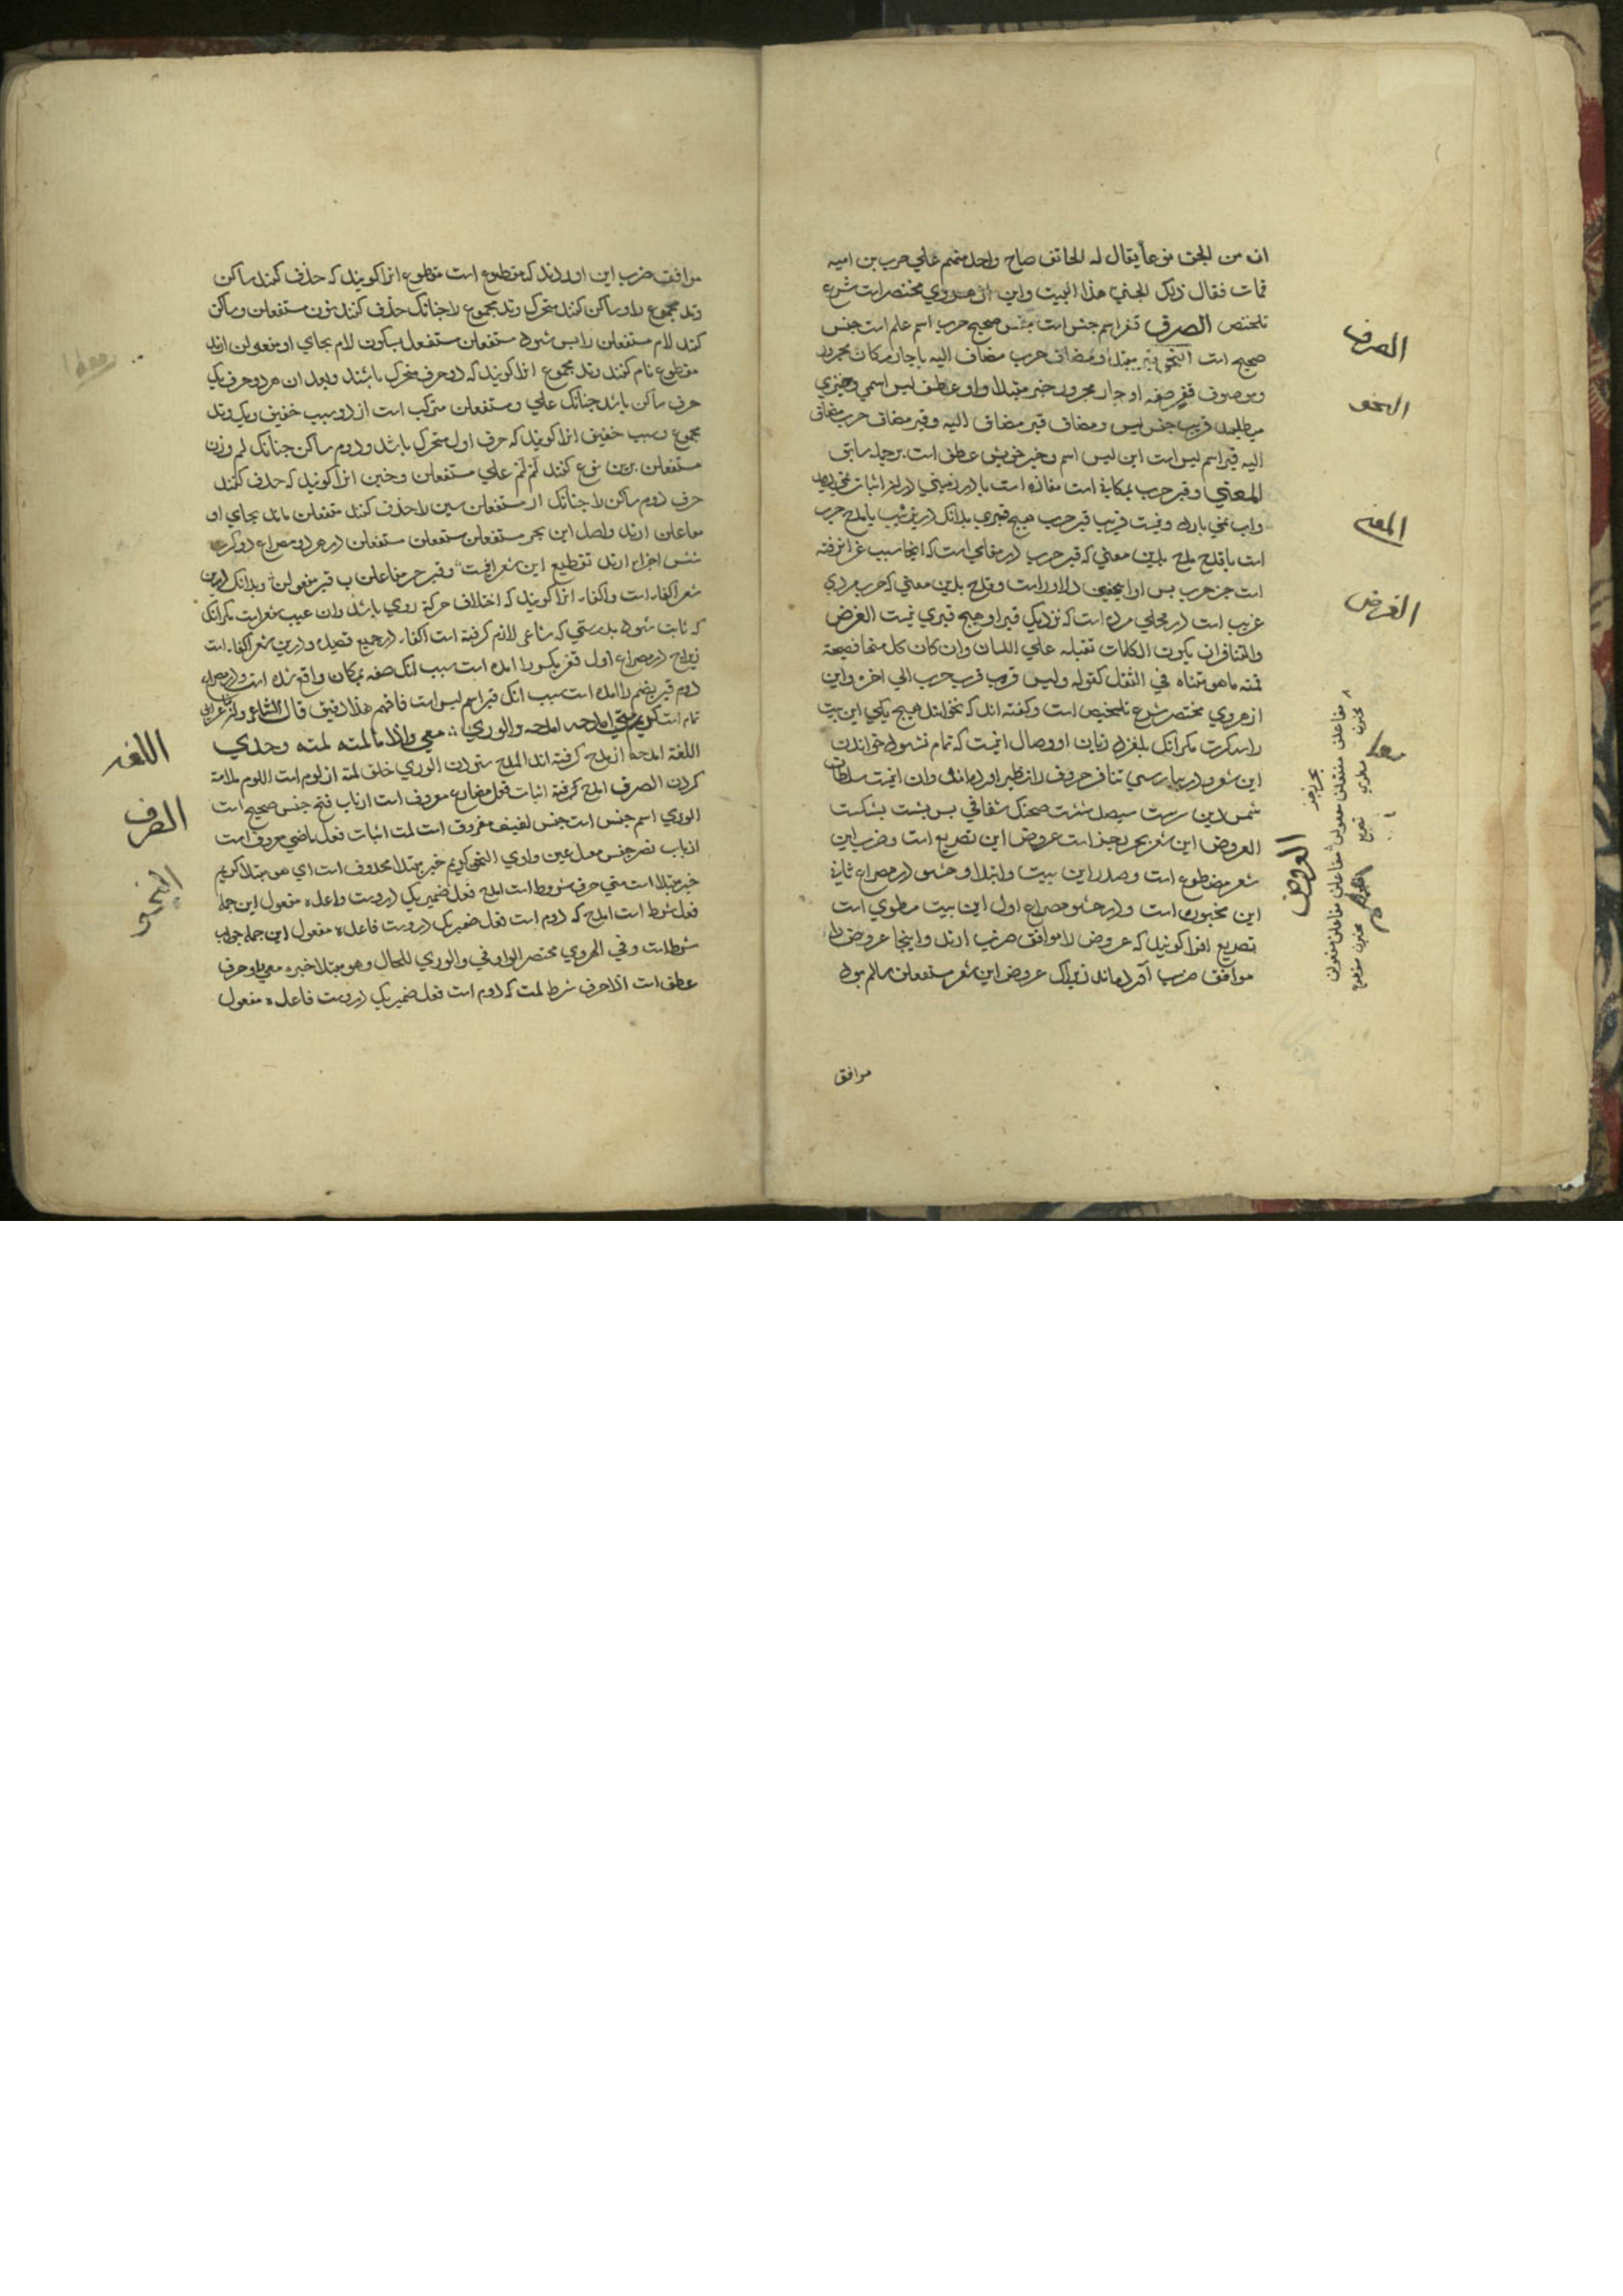 ان من الجن نوعا يقال له الهاتف صاح واحد منهم علي حرب بن اميه
فمات فقال ذلك الجني هذا البيت واين از هروي مختصر است شرح
تلخيص الصرف قفر اسم جنس است جنس صحيح حرب اسم علم است جنس
صحيح است النحو قبر مبتدا ومضاف حرب مضاف اليه با جار مكان مجرور
وموصوف قفر صفه او جار مجرور خبر مبتدا واو عاطف ليس اسمي وخبري
ميطلبد قرب جنس ليس ومضاف قبر مضاف اليه وقبر مضاف حرب مضاف
اليه قبر اسم ليس است اين ليس اسم وخبر خويش عطف است بر جمله سابق
المعني وقبر حرب بمكاني است مفازه است يا در زميني
ونيست قريب قبر حرب هيچ قبري بدانك درين بيت يا مدح حرب
است يا قدح مدح بدين معني كه قبر حرب در مقامي است كه انجا بسبب غزا رفته
است وقدح بدين معني كه حرب مردي
غريب است در محلي مرده است كه نزديك قبر او هيچ قبري نيست الغرض
والتنافر ان يكون الكلمات ثقيله علي اللسان وان كان كل منها فصيحة
فمنه ما هو متناه في الثقل كقوله وليس قرب قبر حرب الي اخره واين
از هروي مختصر شرح تلخيص است وگفته اند كه نخواند هيچ يكي اين بيت
را سه كرت مگر انك بلغزد زبان او وصال انيست كه تمام نشود خواندن
اين شعر ودر پارسي تنافر حروف را نظير اورده اند وان انيست سلطان
شمس الدين
العروض اين شعر بحر رجز است عروض اين تصريع است وضرب اين
شعر مقطوع است وصدر اين بيت وابتدا وحشو در مصراع ثاني
اين مخبون است ودر حشو مصراع اول اين بيت مطوي است
تصريع انرا گويند كه عروض را موافق ضرب ارند واينجا عروض را
موافق ضرب آورده اند زيراك عروض اين شعر مستفعلن سالم بود
موافق
الصرف
النحو
المعني
الغرض
العروض
بحر رجز
موافق ضرب اين اوردند كه مقطوع است مقطوع انرا گويند كه حذف كنند ساكن
وتد مجموع را وساكن كنند متحرك وتد مجموع را چنانك حذف كنند نون مستفعلن وساكن
كنند لام مستفعلن را پس شود مستفعلن مستفعل بسكون لام بجاي او مفعولن ارند
مقطوع نام كنند وتد مجموع انرا گويند كه دو حرف متحرك باشند وبعد ان هر دو حرف يك
حرف ساكن باشد چنانك علي ومستفعلن مركب است از دو سبب خفيف ويك وتد
مجموع وسبب خفيف انرا گويند كه حرف اول متحرك باشد ودوم ساكن چنانك لم وزن
مستفعلن برين نوع كنند لم لم علي مستفعلن وخبن انرا گويند كه حذف كنند
حرف دوم ساكن را چنانك از مستفعلن سين را حذف كنند متفعلن ماند بجاي او
مفاعلن ارند واصل اين بحر مستفعلن مستفعلن مستفعلن در هر دو مصراع
شش اجزاء ارند تقطيع اين شعر اينست وقبر حر مفاعلن ب قبر مفعولن وبدانك درين
شعر اكفاء است واكفاء انرا گويند كه اختلاف حركة روي باشد وان عيب شعر است مگر انك
كه ثابت شود بدرستي كه شاعر لازم گرفته است اكفاء در جميع قصيده ودرين شعر اكفاء است
زيراچ در مصراع اول قفر بكسر را امده است بسبب انك صفه بمكان واقع شده است ودر مصراع
دوم قبر بضم را امده است بسبب انك قبر اسم ليس است فافهم هذا دقيق قال الشاعر
كريم متي امدحه امدحه والوري معي واذا ما لمته لمته وحدي
اللغة امدحه از مدح گرفته اند المدح ستودن الوري خلق لمته از لوم است اللوم ملامة
كردن الصرف امدح گرفته اثبات فعل مضارع معروف است از باب فتح جنس صحيح است
الوري اسم جنس است جنس لفيف مفروق است لمت اثبات فعل ماضي معروف است
از باب نصر جنس معتل عين واوي النحو كريم خبر مبتدا محذوف است اي هو مبتدا كريم
خبر مبتدا است متي حرف شرط است امدح فعل ضمير يك دروست فاعل ه مفعول اين جمله
فعل شرط است امدح كه دوم است فعل ضمير يك دروست فاعل ه مفعول اين جمله جواب
شرط است وفي الهروي مختصر الواو في والوري للحال وهو مبتدا خبره معي واو حرف
عطف است اذا حرف شرط لمت كه دوم است فعل ضمير يك دروست فاعل ه مفعول
اللغه
الصرف
النحو